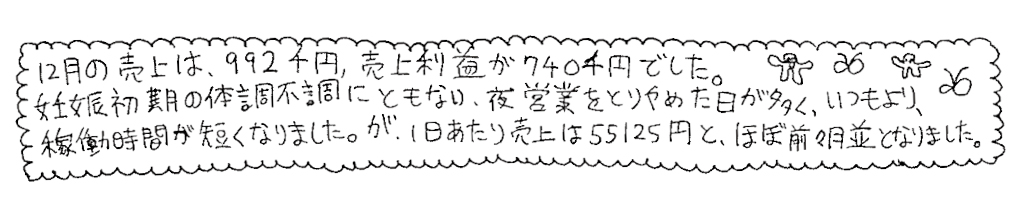 12月の売上は、992千円,売上利益が740千円でした。
妊娠初期の体調不調にともない、夜営業をとりやめた日が多く、いつもより、
稼働時間が短くなりました。が、1日あたり売上は55125円と、ほぼ前々月並となりました。